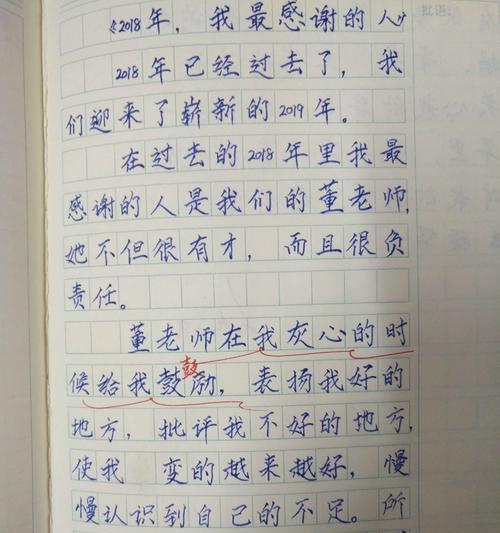 批语:
《2018年，我最感谢的人》
2018年已经过去了，我
们迎来了崭新的2019年。
在过去的2018年里我最
感谢的人是我们的董老师,
她不但很有才，而且很负
责任。
董老师在我灰心的时
鼓
候给我鼓励，表扬我好的
地方，批评我不好的地方,
使我 变的越来越好，慢
慢认识到自己的不足。所